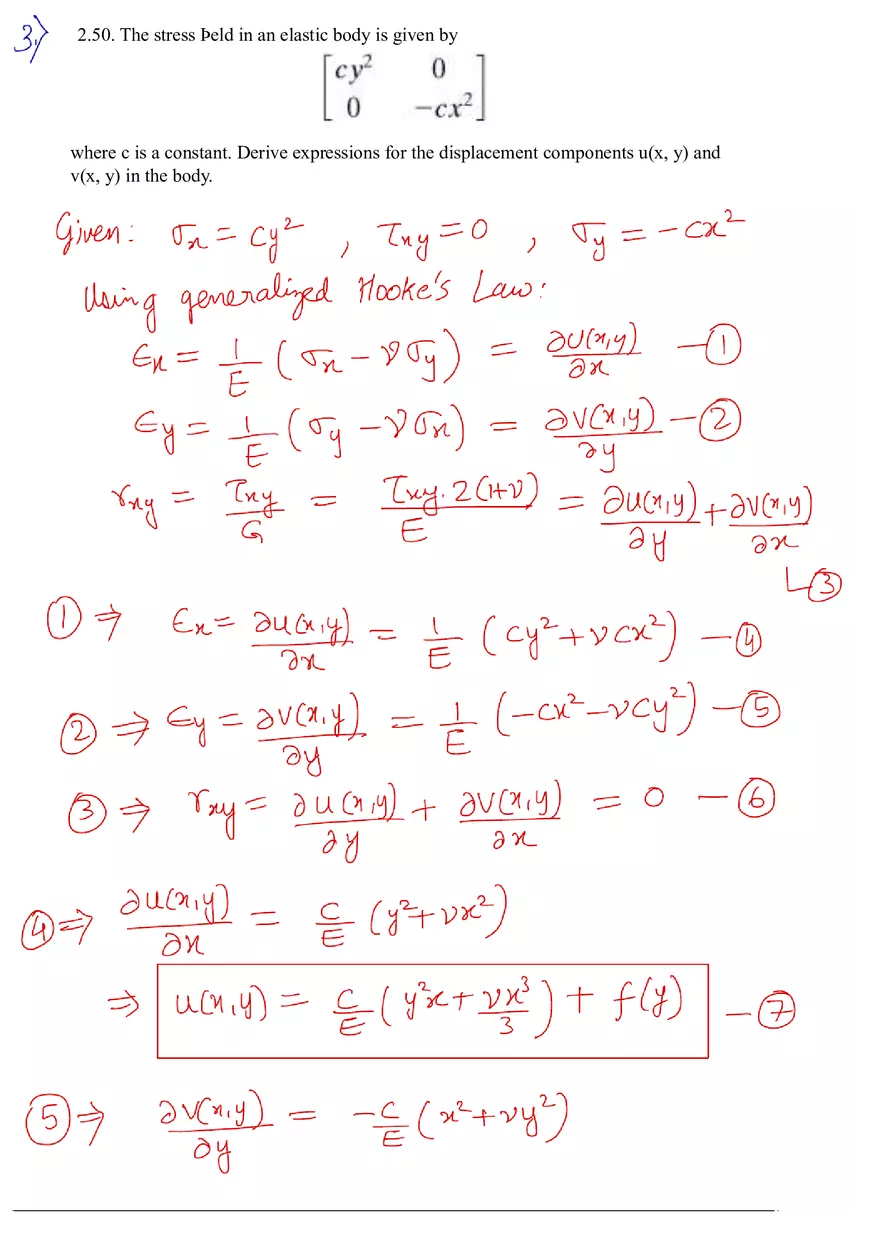 3.)
2.50. The stress Þeld in an elastic body is given by
[cy² 0
0 -cx²]
where c is a constant. Derive expressions for the displacement components u(x, y) and
v(x, y) in the body.
Given: σx = cy² , τxy = 0 , σy = -cx²
Using generalized Hooke's Law:
εx = 1/E (σx - νσy) = ∂u(x,y)/∂x — ①
εy = 1/E (σy - νσx) = ∂v(x,y)/∂y — ②
γxy = τxy/G = τxy·2(1+ν)/E = ∂u(x,y)/∂y + ∂v(x,y)/∂x
↳ ③
① ⇒ εx = ∂u(x,y)/∂x = 1/E (cy² + νcx²) — ④
② ⇒ εy = ∂v(x,y)/∂y = 1/E (-cx² - νcy²) — ⑤
③ ⇒ γxy = ∂u(x,y)/∂y + ∂v(x,y)/∂x = 0 — ⑥
④ ⇒ ∂u(x,y)/∂x = c/E (y² + νx²)
⇒ u(x,y) = c/E (y²x + νx³/3) + f(y) — ⑦
⑤ ⇒ ∂v(x,y)/∂y = -c/E (x² + νy²)